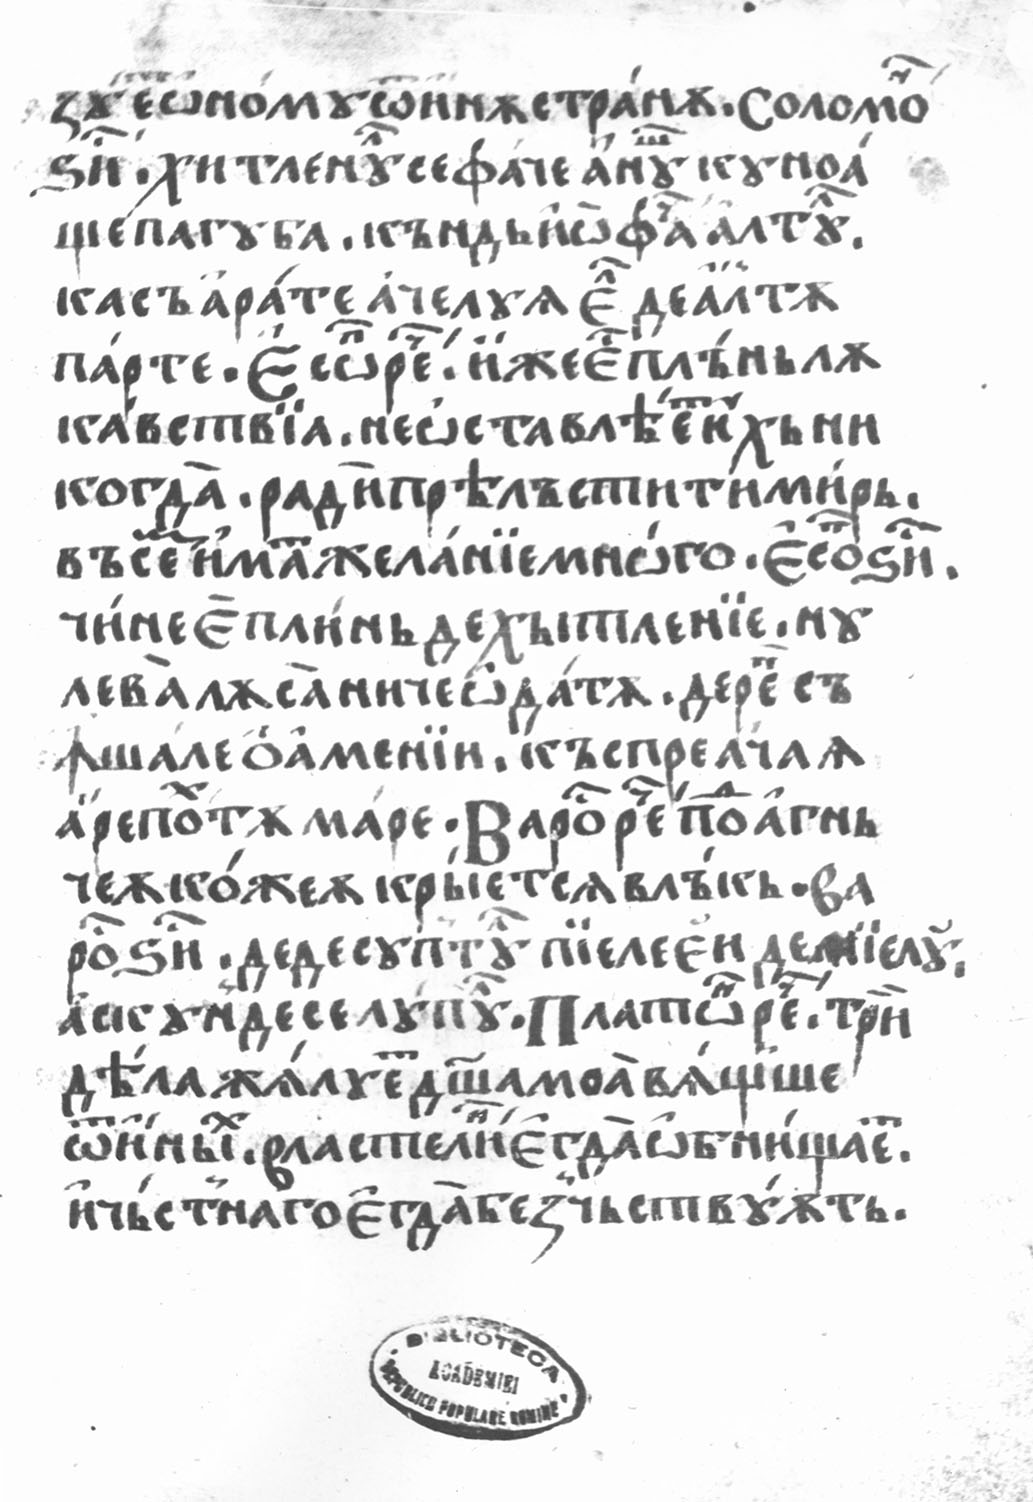 ꙁꙋ́е҆ѡно́мꙋѿи҆нѫстра́нѫ. Соломо҇ⷩ
ѕи҇. хитленꙋ҇ⷧсефа́чеа҆́нꙋⷲ҇кꙋноа́
щепагꙋба. кѫндьи҆ѡ҆фа҇ⷱа҆лтꙋ҇ⷧ.
касъа҆ра́теа҆челꙋѧ є҇ⷧ деа҆́лтѫ
па́рте. Є҆со҇ⷫре҇ⷱ. и҆́жее҆҇плъ́ньлѫ
ка́вствїа. неѡ҆ставлѣ́е҇ⷮи҆хьни
когда̀. радѝпрѣлъстити́ми́рь.
въсе҇ѝмⷶ҇жела́нїемнѡ́го. Є҆со҇ⷫѕи҇.
чи́неє҇плинь дехытленїе. нꙋ
лева̀лѫса̀ничеѡ҆да́тѫ. дере҇ⷫсъ
ꙟшалео҆а҆менїи. къспреа҆чаѧ
а҆́репо̀тѫма́ре. Варо҇ре҇ⷱ по҇ⷣа҆гнь
чеѫко́жеѫкры́етсѧвлъ́кь. Ва
ро҇ѕи҇. дедесꙋптꙋ҇ⷧпїелеє҆и демїїелꙋ̆.
а҆скꙋндеселꙋпꙋ҇ⷧ. Платѡ҇ⷩре҇ⷱ. трѝ
дѣ́лажѧ́лꙋе҇ⷮдш҃амоа̀вѧ́щ́ше
ѿи҆ны́ⷯ. властели҇ⷩє҆гда̀ѡ҆бни́щае҇ⷮ.
и҆чь́стнагоє҆гда̀беꙁчьствꙋ́ѫть.
BIBLIOTECA
ACADEMIEI
REPUBLICII POPULARE ROMINE